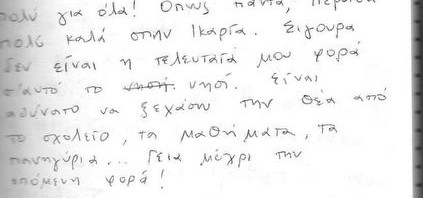 πολύ για όλα! Όπως πάντα, πέρασα
πολύ καλά στην Ικαρία. Σίγουρα
δεν είναι η τελευταία μου φορά
σ'αυτό το νησί. νησί. Είναι
αδύνατο να ξεχάσω την θέα από
το σχολείο, τα μαθήματα, τα
πανηγύρια... Γεια μέχρι την
επόμενη φορά!